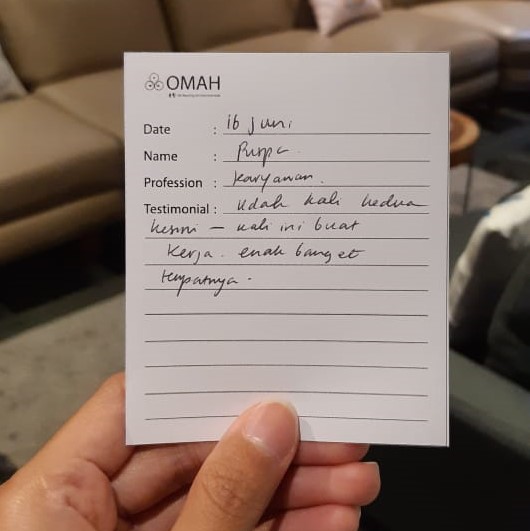 OMAH
Date : 16 Juni
Name : Puspa
Profession : Karyawan.
Testimonial : Udah kali kedua
kesini – kali ini buat
kerja. enak banget
tempatnya.